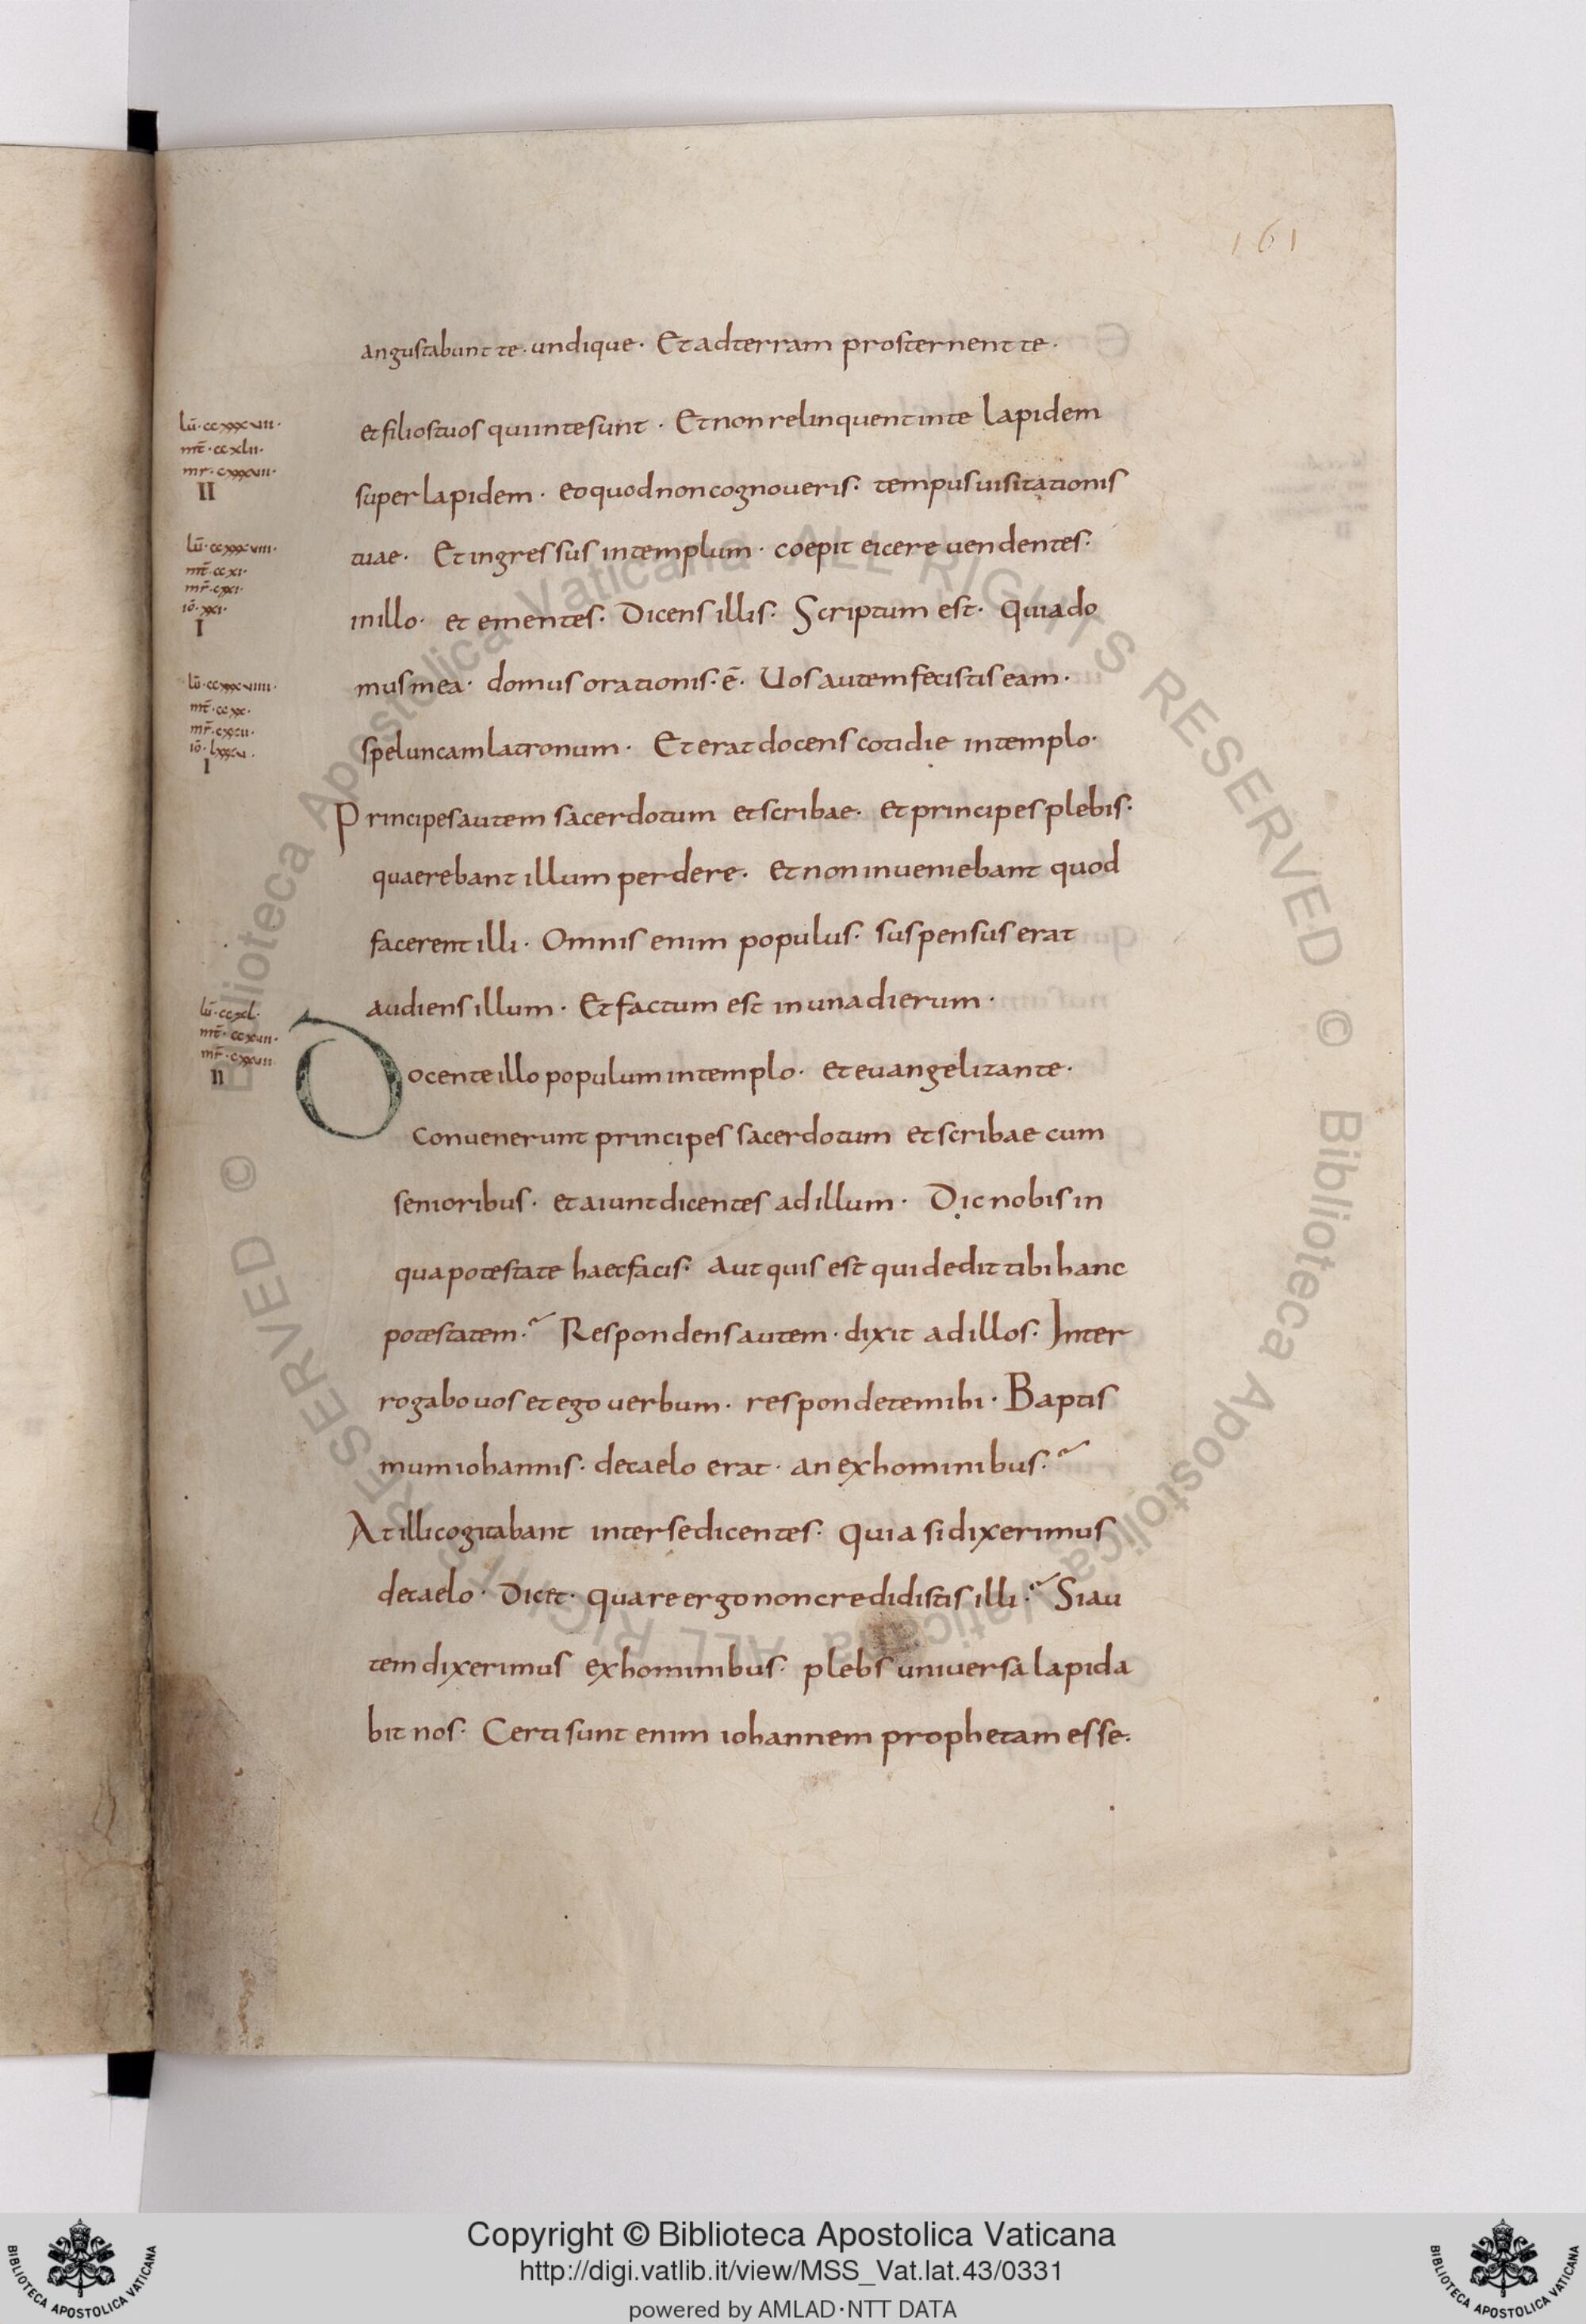 161
angustabunt te · undique · Et ad terram prosternent te ·
lū · ccxxxvii ·
mt̄ · ccxlii ·
mr · cxxxvii ·
II
et filios tuos qui in te sunt · Et non relinquent in te lapidem
super lapidem · eo quod non cognoveris · tempus visitationis
lū · ccxxxviii ·
mt̄ · ccxi ·
mr̄ · cxxi ·
iō · xxi ·
I
tuae · Et ingressus in templum · coepit eicere vendentes ·
in illo · et ementes · Dicens illis · Scriptum est · Quia do
lū · ccxxxviiii ·
mt̄ · ccxx ·
mr̄ · cxxii ·
iō · lxxxv ·
I
mus mea · domus orationis · ē · Uos autem fecistis eam ·
speluncam latronum · Et erat docens cotidie in templo ·
Principes autem sacerdotum et scribae · et principes plebis ·
quaerebant illum perdere · et non inveniebant quod
facerent illi · Omnis enim populus · suspensus erat
audiens illum · Et factum est in una dierum ·
lū · ccxl ·
mt̄ · ccxvii ·
mr̄ · cxxvii
II
Docente illo populum in templo · et evangelizante ·
convenerunt principes sacerdotum et scribae cum
senioribus · et aiunt dicentes ad illum · Dic nobis in
qua potestate haec facis · aut quis est qui dedit tibi hanc
potestatem ·~ Respondens autem · dixit ad illos · Inter
rogabo vos et ego verbum · respondete mihi · Baptis
mum iohannis · de caelo erat · an ex hominibus ·~
At illi cogitabant inter se dicentes · quia si dixerimus
de caelo · Dicet · quare ergo non credidistis illi ·~ Si au
tem dixerimus ex hominibus · plebs universa lapida
bit nos · Certi sunt enim iohannem prophetam esse ·
© Biblioteca Apostolica Vaticana ALL RIGHTS RESERVED © Biblioteca Apostolica Vaticana ALL RIGHTS RESERVED
BIBLIOTECA APOSTOLICA VATICANA
Copyright © Biblioteca Apostolica Vaticana
http://digi.vatlib.it/view/MSS_Vat.lat.43/0331
powered by AMLAD·NTT DATA
BIBLIOTECA APOSTOLICA VATICANA